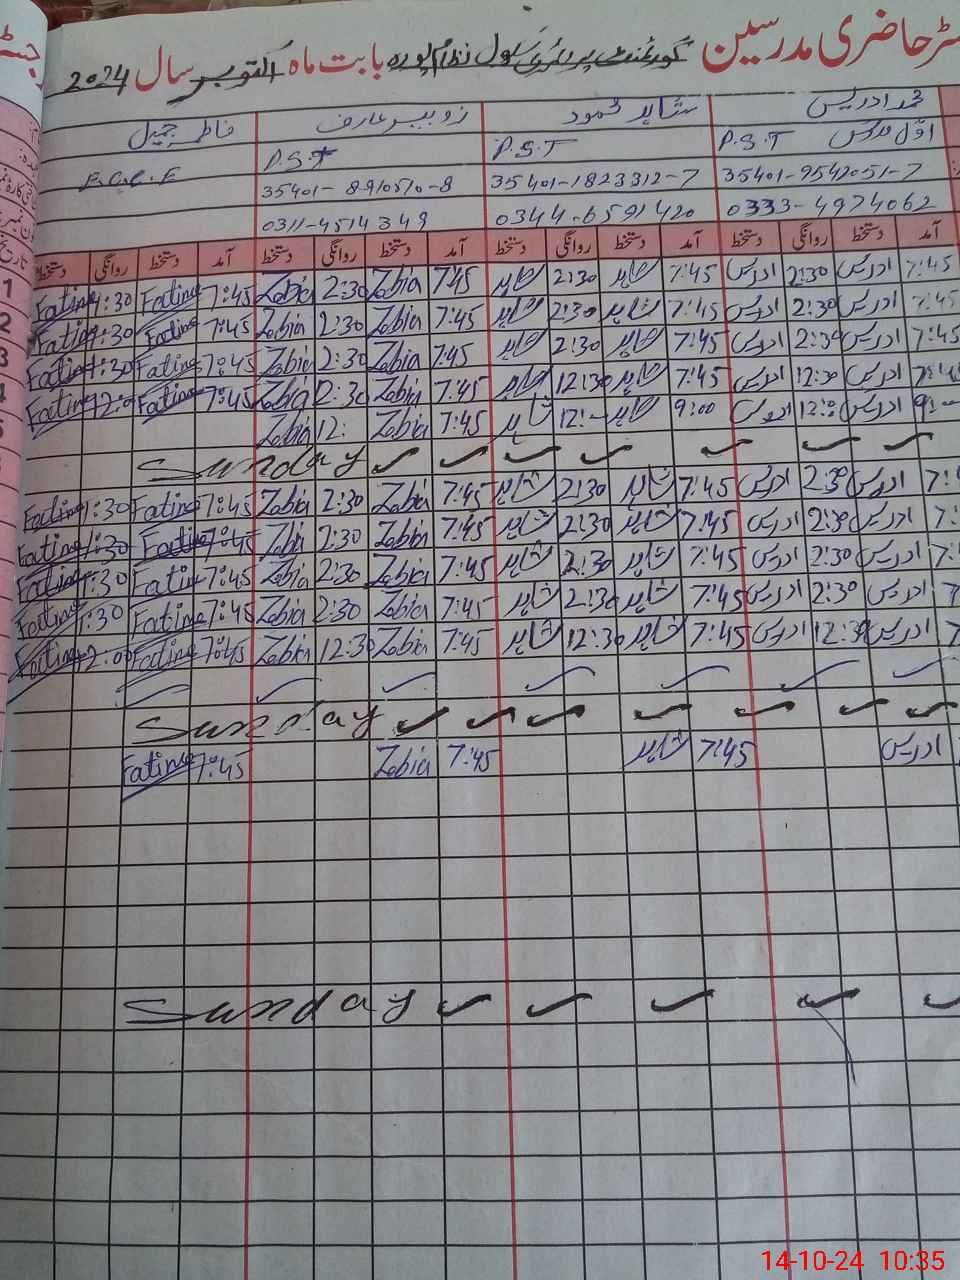 رجسٹر حاضری مدرسین گورنمنٹ پرائمری سکول نظام پورہ بابت ماہ اکتوبر سال 2024
محمد ادریس شاہد محمود زوبیہ عارف فاطمہ جمیل
اول مدرس P.S.T P.S.T P.S.T
35401-9542051-7 35401-1823312-7 35401-8910510-8
0333-4974062 0344-6591420 0311-4514349
آمد دستخط روانگی دستخط آمد دستخط روانگی دستخط آمد دستخط روانگی دستخط آمد دستخط روانگی دستخط
7:45 ادریس 2:30 ادریس 7:45 شاہد 2:30 شاہد 7:45 Zobia 2:30 Zobia 7:45 Fatima 1:30 Fatima
7:45 ادریس 2:30 ادریس 7:45 شاہد 2:30 شاہد 7:45 Zobia 2:30 Zobia 7:45 Fatima 1:30 Fatima
7:45 ادریس 2:30 ادریس 7:45 شاہد 2:30 شاہد 7:45 Zobia 2:30 Zobia 7:45 Fatima 1:30 Fatima
ادریس 12:30 ادریس 7:45 شاہد 12:30 شاہد 7:45 Zobia 12:30 Zobia 7:45 Fatima 12:00 Fatima
ادریس 12:00 ادریس 9:00 شاہد شاہد 7:45 Zobia 12: Zobia
Sunday ✓ ✓ ✓ ✓ ✓ ✓ ✓
ادریس 2:30 ادریس 7:45 شاہد 2:30 شاہد 7:45 Zobia 2:30 Zobia 7:45 Fatima 1:30 Fatima
ادریس 2:30 ادریس 7:45 شاہد 2:30 شاہد 7:45 Zobia 2:30 Zobia 7:45 Fatima 1:30 Fatima
ادریس 2:30 ادریس 7:45 شاہد 2:30 شاہد 7:45 Zobia 2:30 Zobia 7:45 Fatima 1:30 Fatima
ادریس 2:30 ادریس 7:45 شاہد 2:30 شاہد 7:45 Zobia 2:30 Zobia 7:45 Fatima 1:30 Fatima
ادریس 12:30 ادریس 7:45 شاہد 12:30 شاہد 7:45 Zobia 12:30 Zobia 7:45 Fatima 12:00 Fatima
Sunday ✓ ✓ ✓ ✓ ✓ ✓ ✓
ادریس 7:45 شاہد 7:45 Zobia 7:45 Fatima
Sunday ✓ ✓ ✓ ✓ ✓
14-10-24 10:35